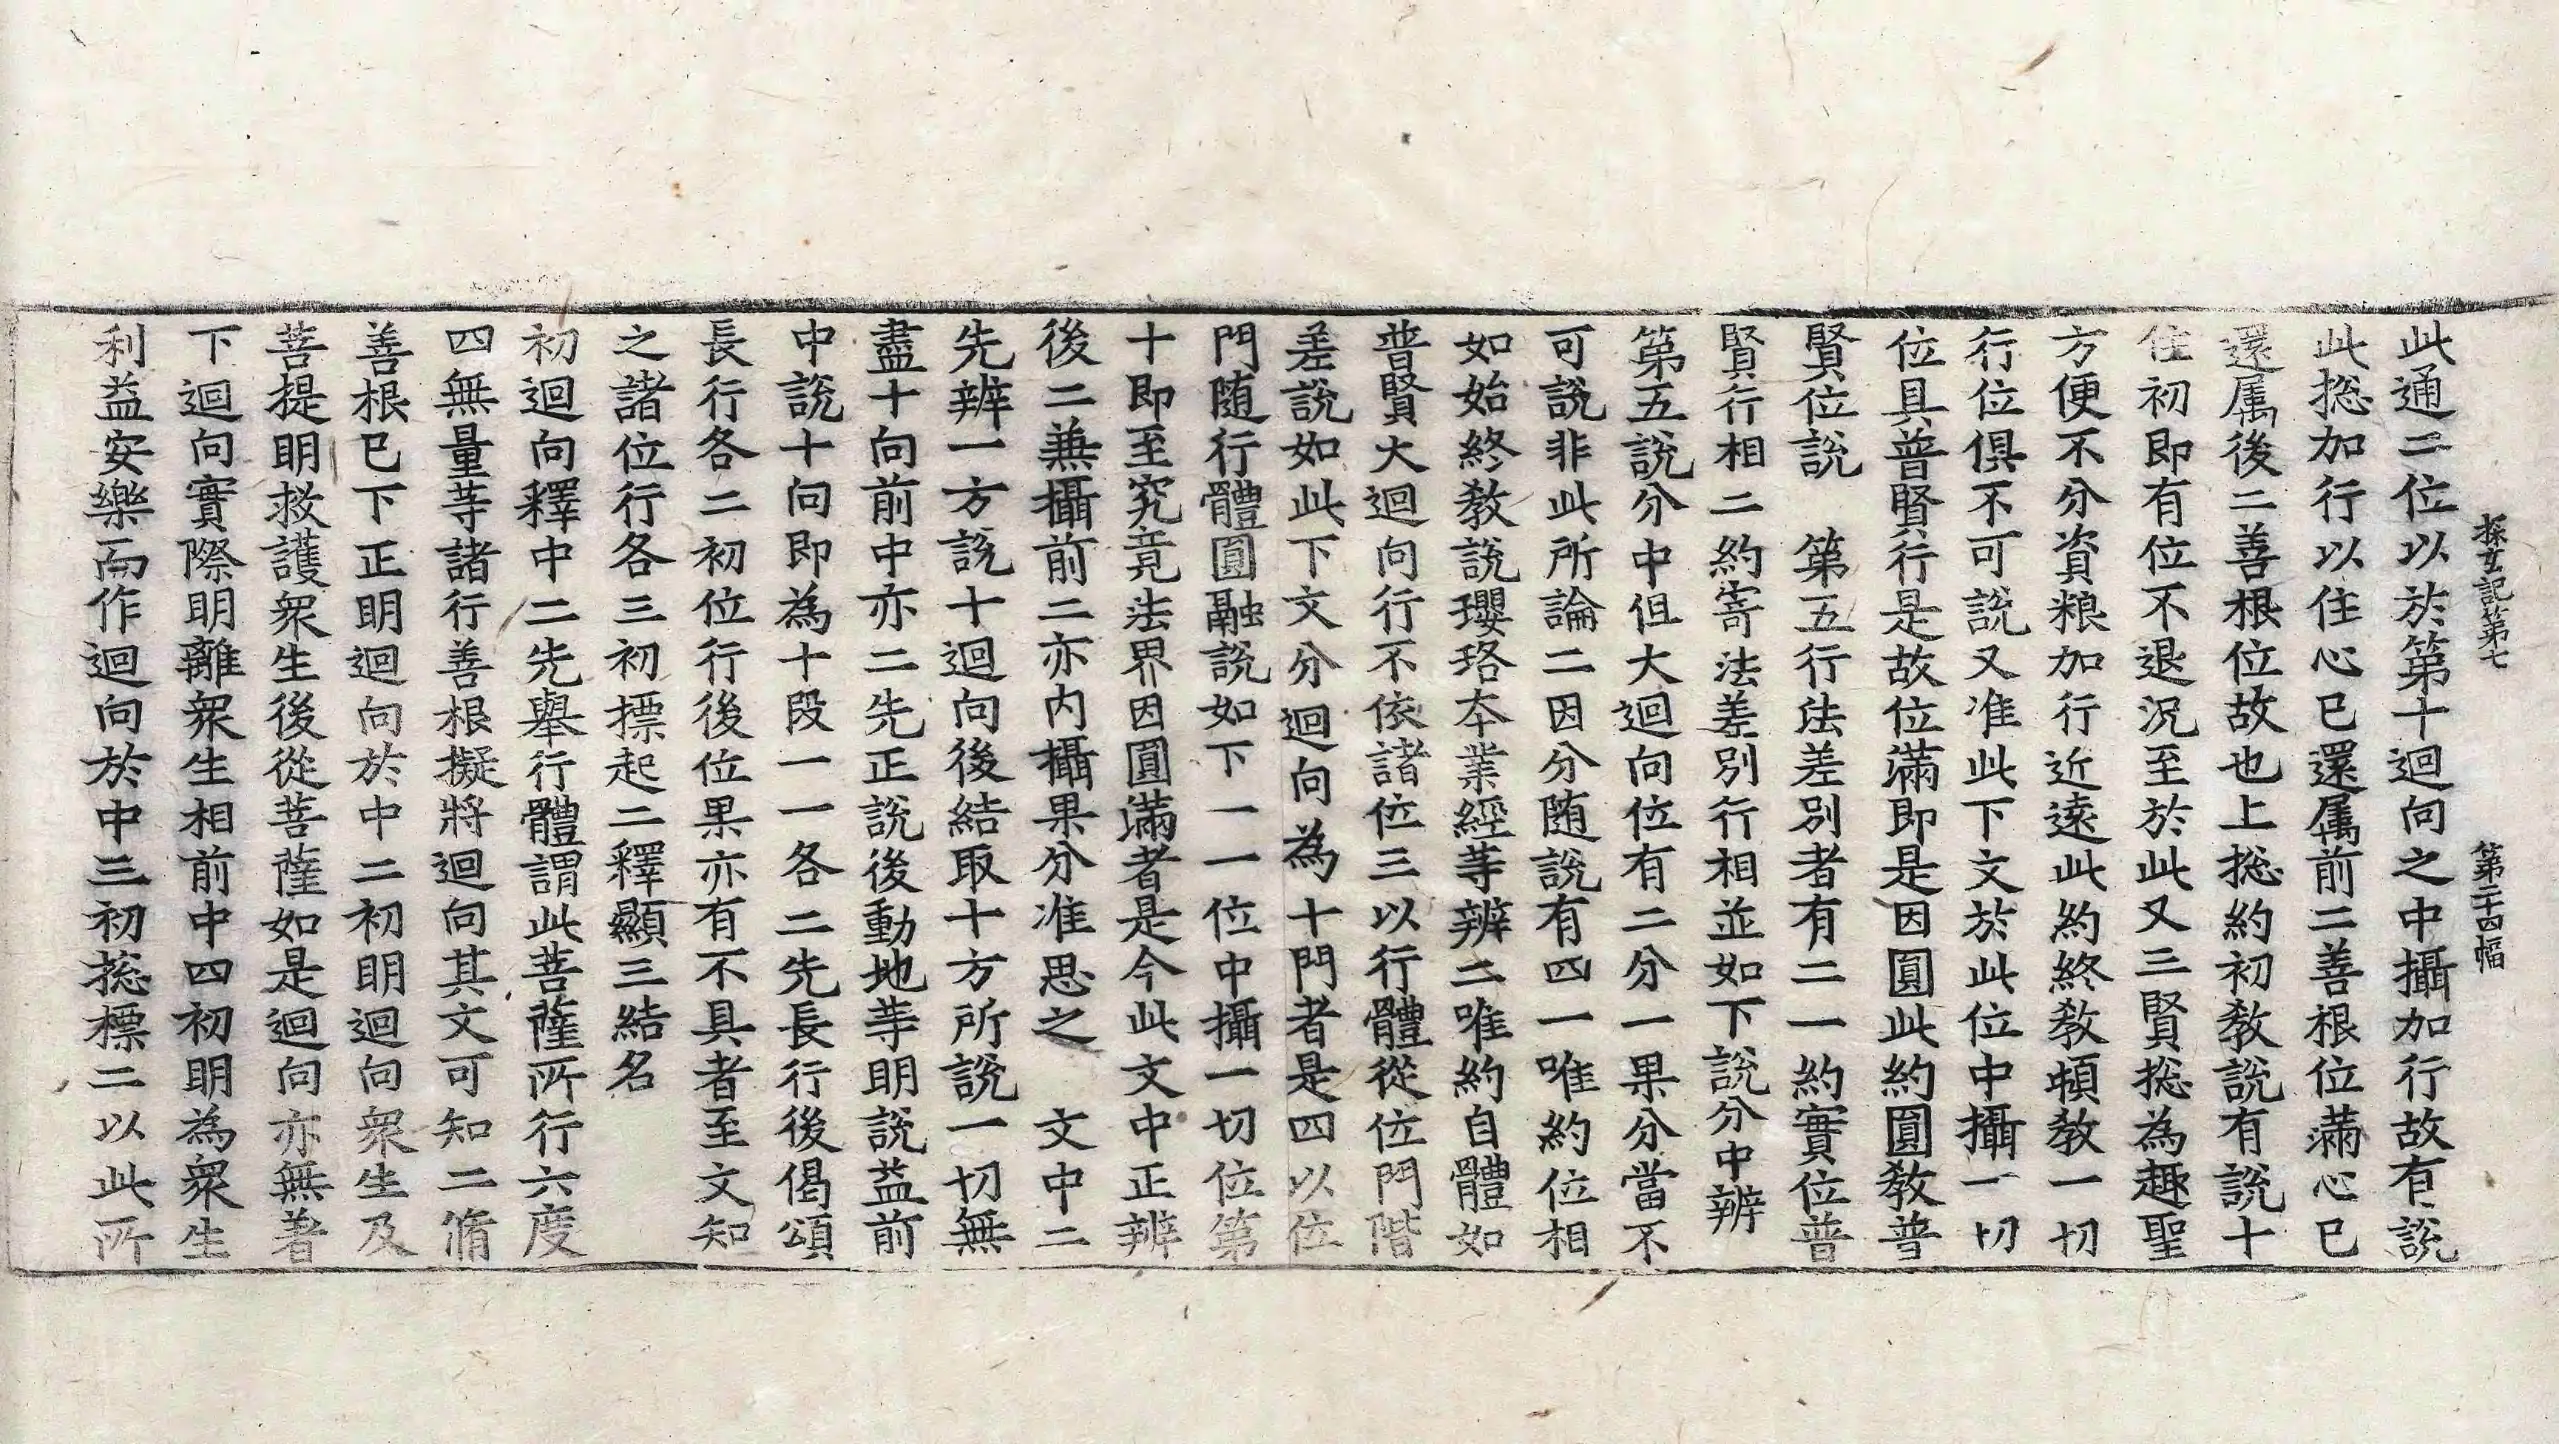 探玄記第七　第二十四幅
此通二位以於第十迴向之中攝加行故有說
此揔加行以住心已還属前二善根位滿心已
還属後二善根位故也上揔約初教說有說十
住初即有位不退況至於此又三賢揔為趣聖
方便不分資粮加行近遠此約終教頓教一切
行位俱不可說又准此下文於此位中攝一切
位具普賢行是故位滿即是因圓此約圓教普
賢位說　第五行法差別者有二一約實位普
賢行相二約寄法差別行相並如下說分中辨
第五說分中但大迴向位有二分一果分當不
可說非此所論二因分随說有四一唯約位相
如始終教說瓔珞本業經等辨二唯約自體如
普賢大迴向行不依諸位三以行體從位門階
差說如此下文分迴向為十門者是四以位
門随行體圓融說如下一一位中攝一切位第
十即至究竟法界因圓滿者是今此文中正辨
後二兼攝前二亦内攝果分准思之　文中二
先辨一方說十迴向後結取十方所說一切無
盡十向前中亦二先正說後動地等明說益前
中說十向即為十段一一各二先長行後偈頌
長行各二初位行後位果亦有不具者至文知
之諸位行各三初摽起二釋顯三結名
初迴向釋中二先舉行體謂此菩薩所行六度
四無量等諸行善根擬將迴向其文可知二脩
善根已下正明迴向於中二初明迴向衆生及
菩提明救護衆生後從菩薩如是迴向亦無著
下迴向實際明離衆生相前中四初明為衆生
利益安樂而作迴向於中三初揔標二以此所